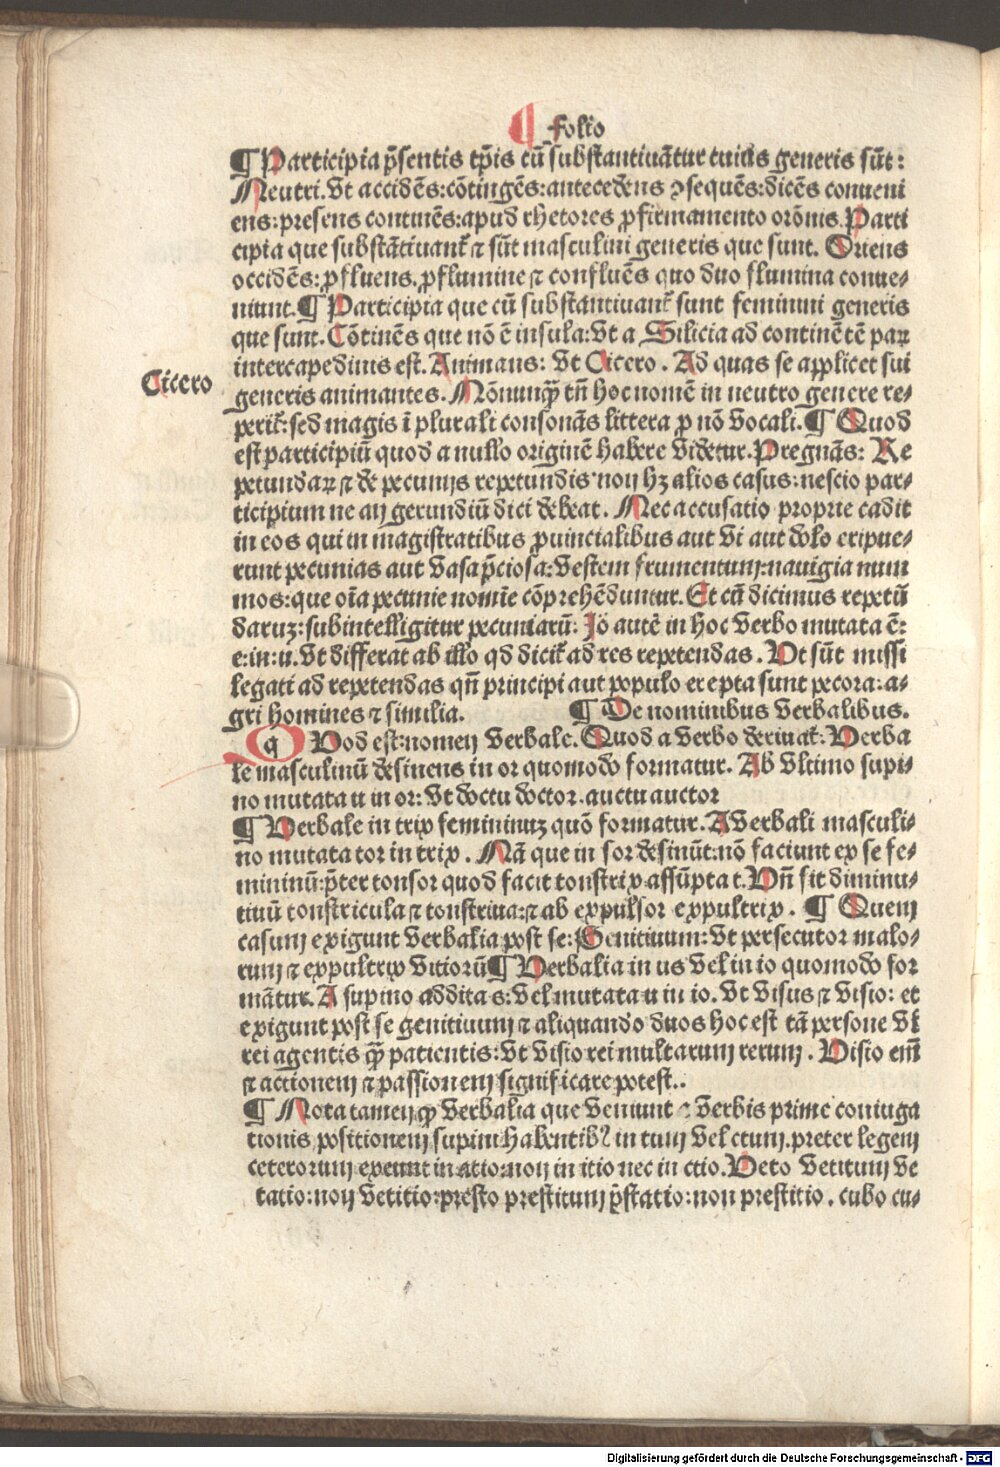 ¶ folio
¶ Participia p̄sentis tp̄is cū substantiuātur cuiꝰ generis sūt:
Neutri. Ut accidēs: cōtingēs: antecedens ꝯsequēs: dicēs conueni
ens: presens continēs: apud rhetores ꝓ firmamento orōnis. Parti
cipia que substātiuant᷑ ⁊ sūt masculini generis que sunt. Oriens
occidēs: ꝓfluens. ꝓ flumine ⁊ confluēs quo duo flumina conue⸗
niunt. ¶ Participia que cū substantiuant᷑ sunt feminini generis
que sunt. Cōtinēs que nō ē insula: Ut a Silicia ad continētē paꝝ
intercapedinis est. Animans: Ut Cicero. Ad quas se applicet sui
Cicero
generis animantes. Nōnunꝙ̄ tn̄ hoc nomē in neutro genere re⸗
perit᷑: sed magis ī plurali consonās littera ꝓ nō vocali. ¶ Quod
est participiū quod a nullo originē habere videtur. Pregnās: Re
petundaꝝ ⁊ de pecunijs repetundis non hꝫ alios casus: nescio par⸗
ticipium ne an gerundiū dici debeat. Nec accusatio proprie cadit
in eos qui in magistratibus ꝓuincialibus aut vi aut dolo eripue⸗
runt pecunias aut vasa p̄ciosa: vestem frumentum: nauigia num
mos: que oīa pecunie nomīe cōprehēduntur. Et cū dicimus repetū
daruꝫ: subintelligitur pecuniarū: Jō autē in hoc verbo mutata ē:
e: in: u. Ut differat ab illo qd̄ dicit᷑ ad res repetendas. Ut sūt missi
legati ad repetendas qn̄ principi aut populo erepta sunt pecora: a⸗
gri homines ⁊ similia. ¶ De nominibus verbalibus.
q Uod est: nomen verbale. Quod a verbo deriuat᷑: Verba
le masculinū desinens in or quomodo formatur. Ab vltimo supi⸗
no mutata u in or: Ut doctu doctor. auctu auctor
¶ Verbale in trix femininuꝫ quō formatur. A verbali masculi⸗
no mutata tor in trix. Nā que in sor desinūt: nō faciunt ex se fe⸗
mininū: p̄ter tonsor quod facit tonstrix assūpta t. Un̄ fit diminu⸗
tiuū tonstricula ⁊ tonstrina: ⁊ ab expulsor expultrix. ¶ Quem
casum exigunt verbalia post se: Genitiuum: Ut persecutor malo⸗
rum ⁊ expultrix vitiorū ¶ Verbalia in us vel in io quomodo for
mātur. A supino addita s: vel mutata u in io. Ut visus ⁊ visio: et
exigunt post se genitiuum ⁊ aliquando duos hoc est tā persone vl̄
rei agentis ꝙ̄ patientis: Ut visio rei multarum rerum. Visio em̄
⁊ actionem ⁊ passionem significare potest..
¶ Nota tamen ꝙ verbalia que veniunt a verbis prime coniuga
tionis positionem supini habentibꝰ in tum vel ctum. preter legem
ceterorum exeunt in atio: non in itio nec in ctio. Veto vetitum ve
tatio: non vetitio: presto prestitum p̄statio: non prestitio. cubo cu⸗
Digitalisierung gefördert durch die Deutsche Forschungsgemeinschaft - DFG